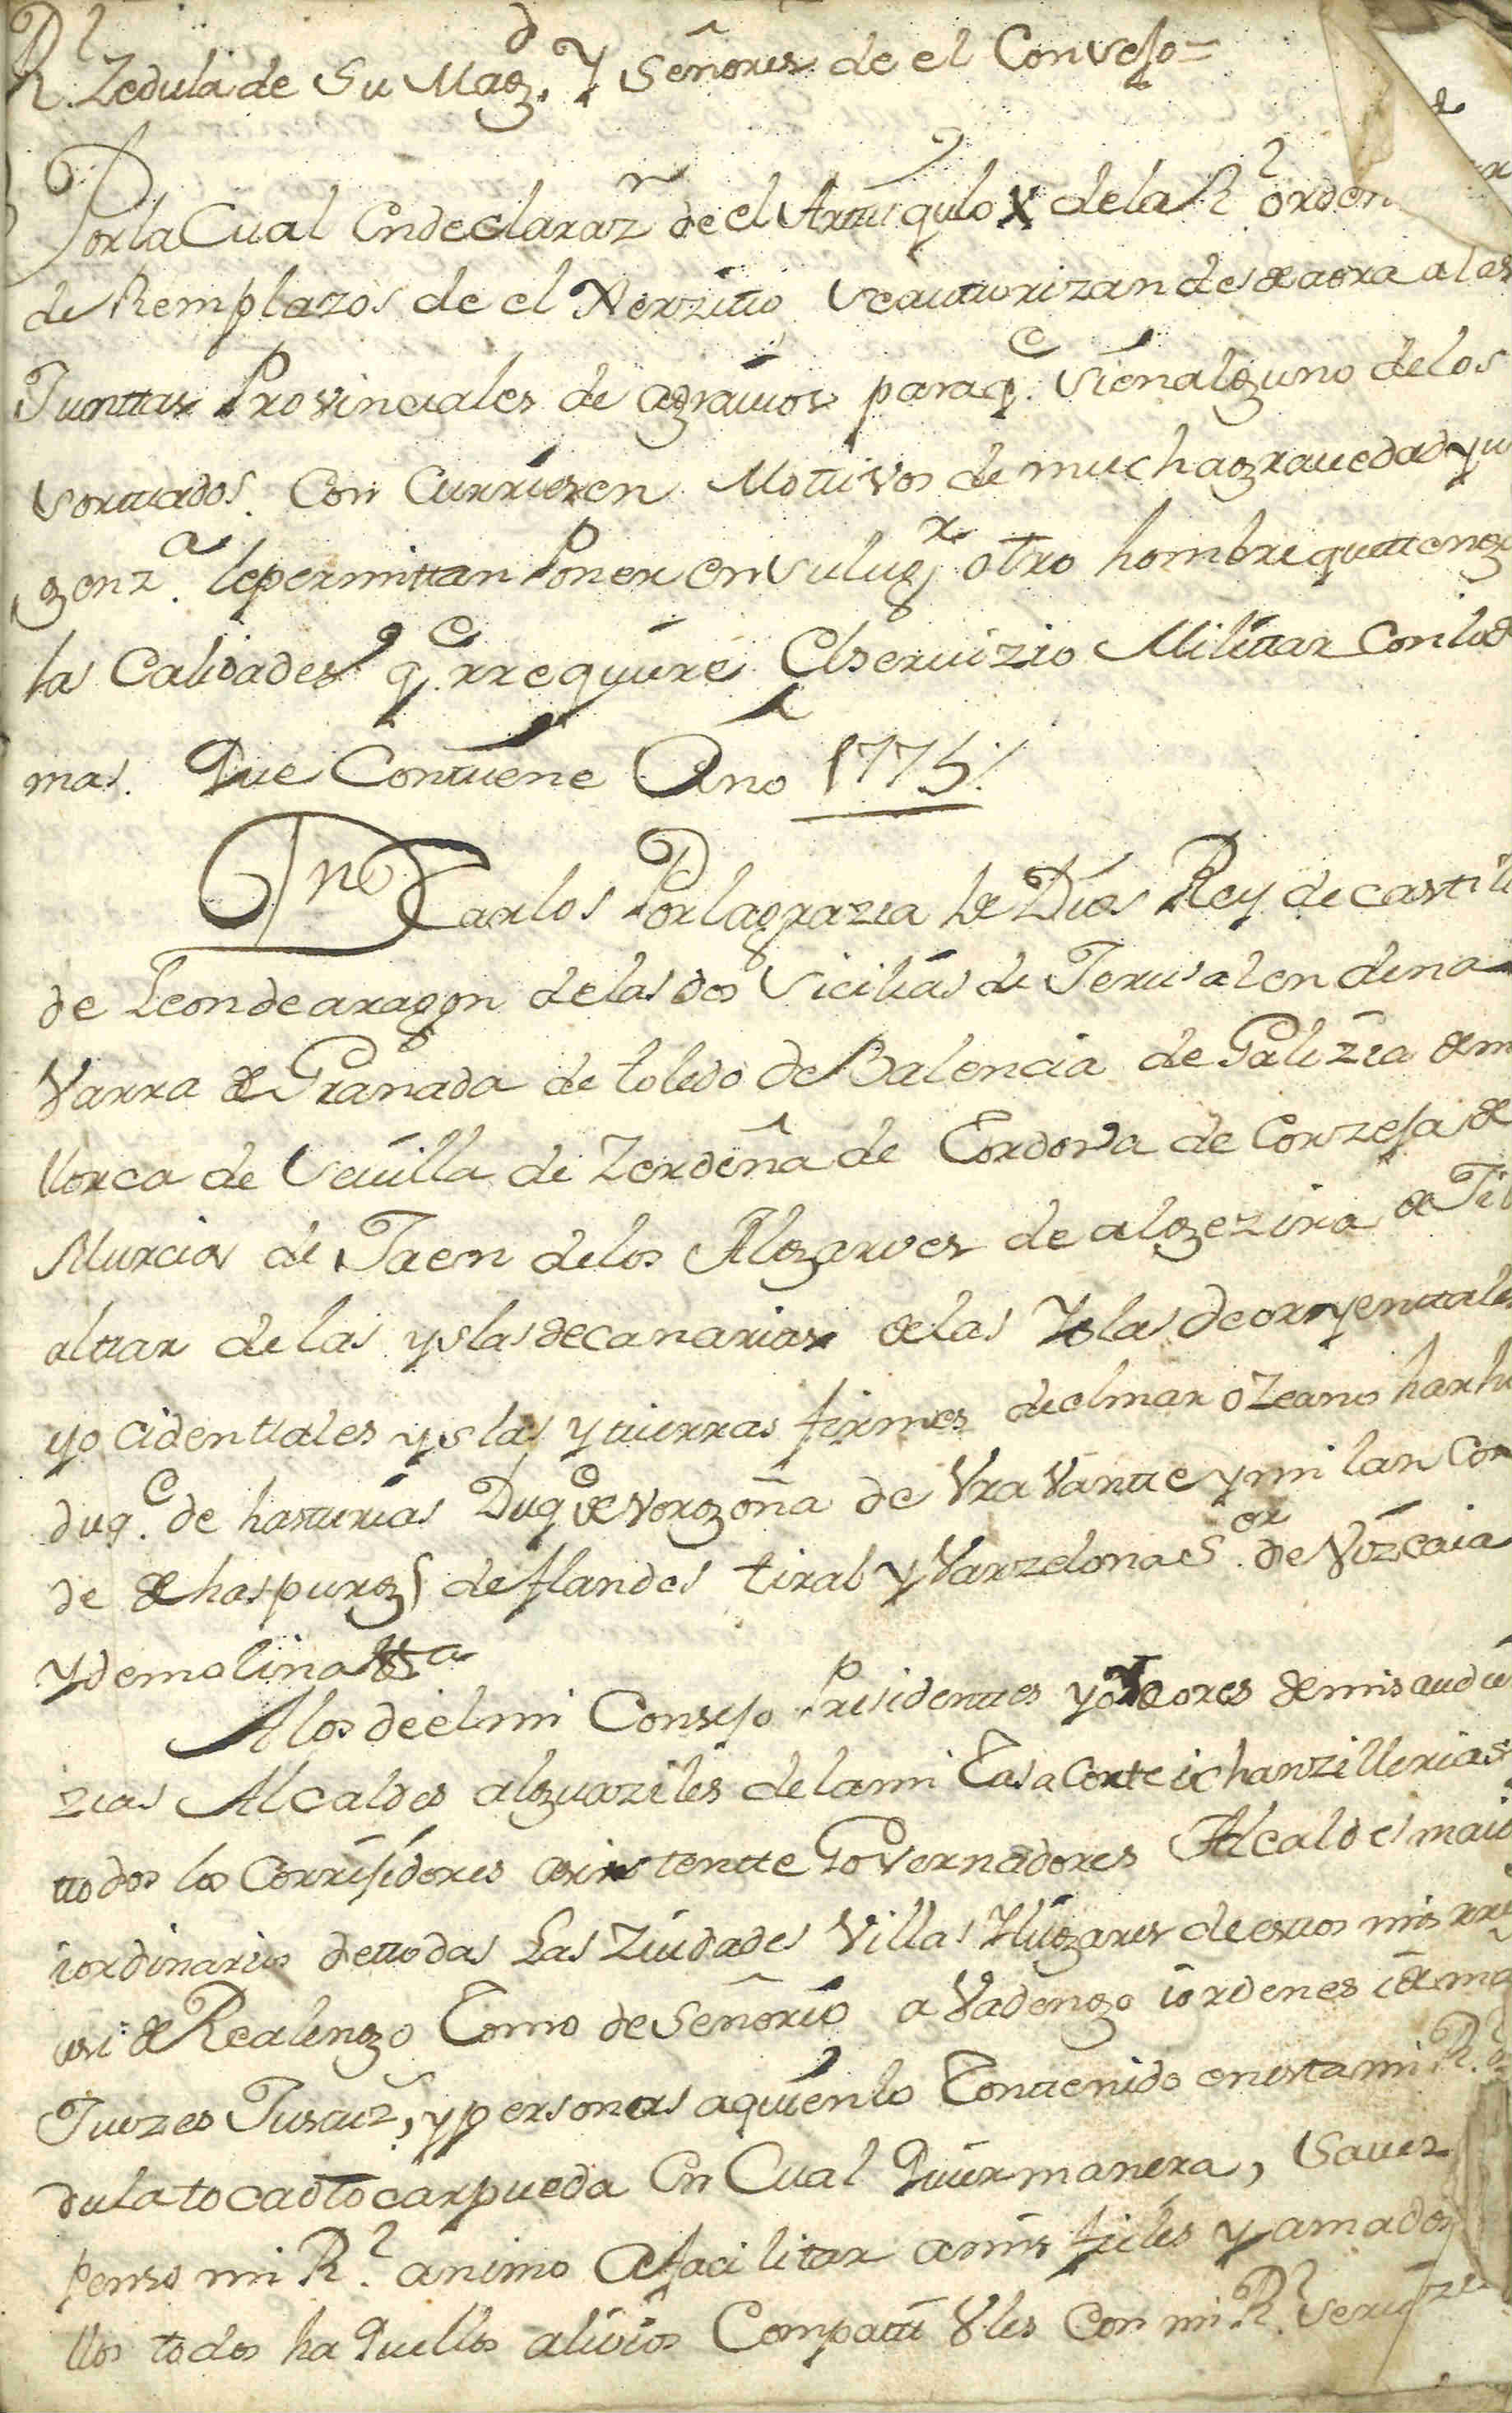 Rl Zedula de Su Magd. Y Señores de el Consejo=
Por la Cual En declarazn de el Artiqulo X de la Rl orden
de Remplazos de el Xerzitto se auttorizan desde aora a las
Junttas Provinciales de agravios para qe. si en alguno de los
sorttados. Con Currieren Mottivos de mucha gravedad y u
genza. le permittan Poner en su lugr otro hombre que ttenga
las Calidades qe rrequiere El servizio Milittar Con lo de
mas. Que Conttiene Año 1775.
Dn Carlos Por la grazia de Dios Rey de castill
de Leon de aragon de las dos Sicilias de Jerusalen de na
Varra de Granada de toledo de Balencia de Galizia de m
llorca de Sevilla de Zerdeña de Cordova de Corzeja de
Murcia de Jaen de los Algarves de algezira de Jib
alttar de las yslas de canarias de las Yslas de oryenttales
y ocidenttales yslas y tierras firmes de el mar ozeano harhi
duqe. de hasturias Duqe de Vorgoña de Vravantte y milan Con
de de haspurg, de flandes tirol y Varzelona Sor. de Vizcaia
y de molina &a
A los de el mi Consejo Presidenttes y oydores de mis audie
zias Alcaldes alguaziles de la mi Casa Corte i chanzillerias
ttodos los Correjidores asistentte Governadores Alcaldes maio
i ordinarios de ttodas Las Ziudades Villas Y lugares de esttos mis rre
asi de Realengo Como de Señorio aVadengo i ordenes i de ma
Juezes Justtizs, y personas a quien lo Conttenido en esta mi Rl. Ze
dula toca o tocar pueda En Cual Quier manera, Saved
penso mi Rl. animo de facilitar a mis fieles y amados
llos todos haquellos alivios Compatti Vles Con mi Rl. servizi